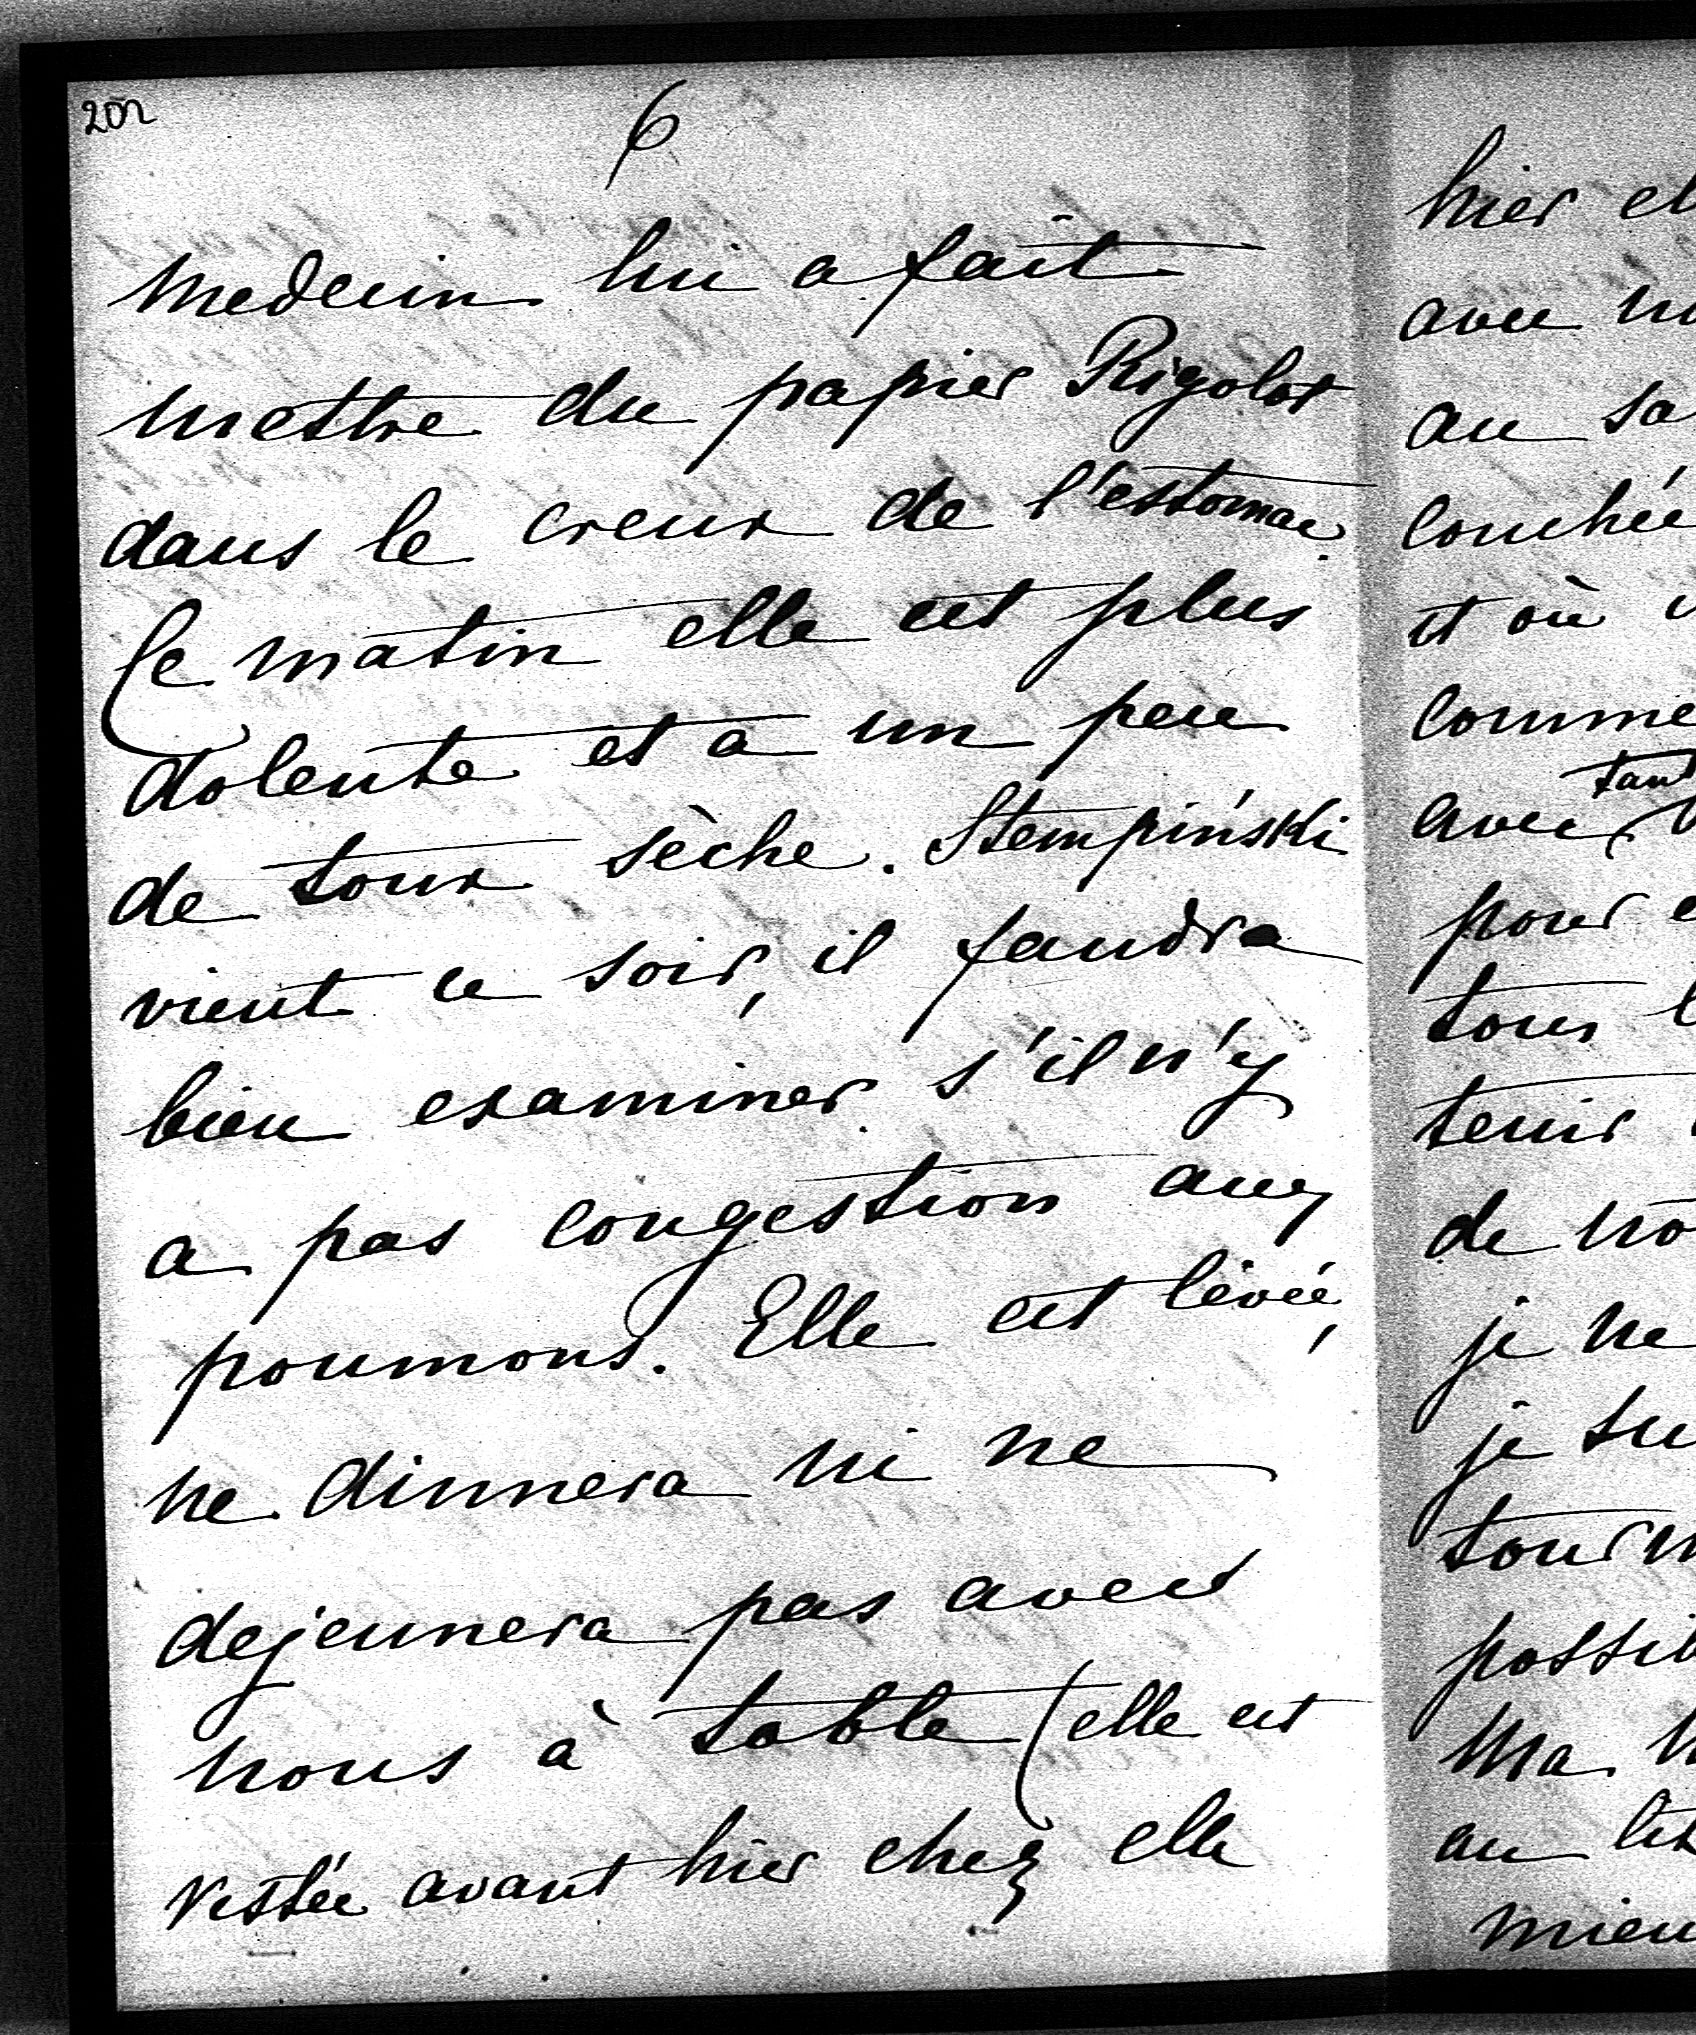 202
6
medecin lui a fait
mettre du papier Rigolot
dans le creux de l'estomac.
Ce matin elle est plus
dolente et a un peu
de toux sèche. Stempiński
vient ce soir, il faudra
bien examiner s'il n'y
a pas congestion aux
poumons. Elle est levée,
ne dinnera ni ne
dejeunera pas avec
nous à table (elle est
restée avant hier chez elle
hier et
avec
au
couchée
et où
comme
tant
avec
pour
tous
tenir
de
je ne
je
possib
Ma
au lit
mieu